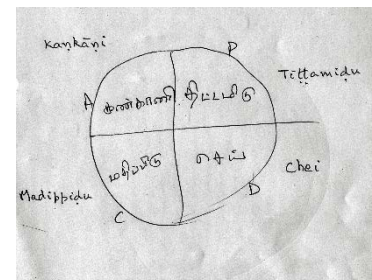 Kaṇkāṇi
P
Tiṭṭamiḍu
A
கண்காணி
திட்டமிடு
மதிப்பிடு
செய்
Chei
Madippiḍu
C
D